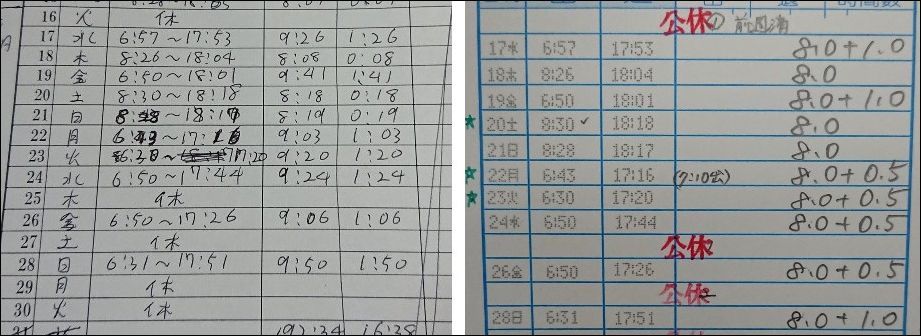 16 火 休
17 水 6:57〜17:53 9:26 1:26
18 木 8:26〜18:04 8:08 0:08
19 金 6:50〜18:01 9:41 1:41
20 土 8:30〜18:18 8:18 0:18
21 日 18:17 8:19 0:19
22 月 9:03 1:03
23 火 17:20 9:20 1:20
24 水 6:50〜17:44 9:24 1:24
25 木 休
26 金 6:50〜17:26 9:06 1:06
27 土 休
28 日 6:31〜17:51 9:50 1:50
29 月 休
30 火 休
192:34 16:38
公休
17水 6:57 17:53 8.0+1.0
18木 8:26 18:04 8.0
19金 6:50 18:01 8.0+1.0
20土 8:30 18:18 8.0
21日 8:28 18:17 8.0
22月 6:43 17:16 (7:10出) 8.0+0.5
23火 6:30 17:20 8.0+0.5
24水 6:50 17:44 8.0+0.5
公休
26金 6:50 17:26 8.0+0.5
公休
28日 6:31 17:51 8.0+1.0